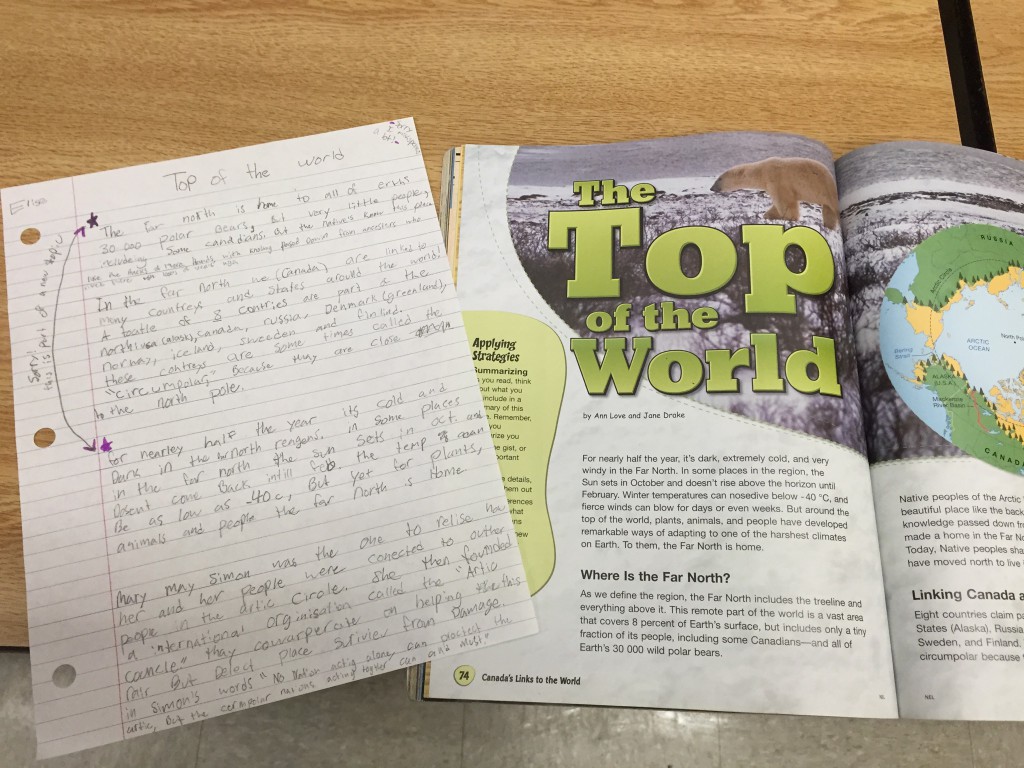 Top of the world
Elise
Sorry! this is part of a new topic
The far north is home to all of erths
30 000 Polar Bears, But very little people,
including some canadians. But the native's know this place
like the backs of there hands with knowing passed down from ancesters who
In the far north we (Canada) are linked to
many countreys and states around the world!
A toatle of 8 contries are part of the
north! usa (alaska), canada, russia, Denmark (greenland),
norway, iceland, sweeden and finlind.
these contreys are some times called the
"circumpolar," Because they are close
to the north pole.
for nearley half the year its cold and
Dark in the far north rengens. in some places
in the far north the sun sets in oct and
Dosent come Back intill feb. the temp can
Be as low as -40c, But yet for plants,
animals and people the far north is home
Mary may Simon was the one to relise how
her and her people were conected to outher
people in the artic Circle. She then founded
a international orginisation called the "Artic
councle" thay cowarperate on helping the this
fair But Delect place surivie from Damage.
in Simon's words "No Nation acting alone can protect the
artic, But the cermpolar nations acting together can and must."
The
Top
of the
World
by Ann Love and Jane Drake
Applying
Strategies
Summarizing
you read, think
out what you
include in a
mary of this
Remember,
you
rize you
gist, or
portant
details,
them out
erences
what
ns
new
For nearly half the year, it's dark, extremely cold, and very
windy in the Far North. In some places in the region, the
Sun sets in October and doesn't rise above the horizon until
February. Winter temperatures can nosedive below -40 °C, and
fierce winds can blow for days or even weeks. But around the
top of the world, plants, animals, and people have developed
remarkable ways of adapting to one of the harshest climates
on Earth. To them, the Far North is home.
Where Is the Far North?
As we define the region, the Far North includes the treeline and
everything above it. This remote part of the world is a vast area
that covers 8 percent of Earth's surface, but includes only a tiny
fraction of its people, including some Canadians—and all of
Earth's 30 000 wild polar bears.
74 Canada's Links to the World
NEL
RUSSIA
Arctic Circle
North Pole
ARCTIC
OCEAN
Bering
Strait
ALASKA
(U.S.A.)
Mackenzie
River Basin
CANADA
Native peoples of the Arctic
beautiful place like the back
knowledge passed down from
made a home in the Far No
Today, Native peoples sha
have moved north to live
Linking Canada a
Eight countries claim pa
States (Alaska), Russia
Sweden, and Finland.
circumpolar because
NEL